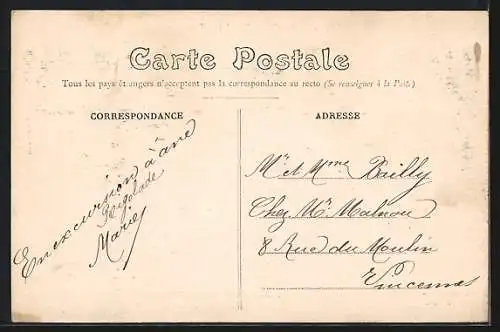 Carte Postale
Tous les pays étrangers n'acceptent pas la correspondance au recto (Se renseigner à la Poste)
CORRESPONDANCE
ADRESSE
En excursion à âne
Rigolade
Marie
Mr et Mme Bailly
Chez Mr
8 Rue du Moulin
Vincennes